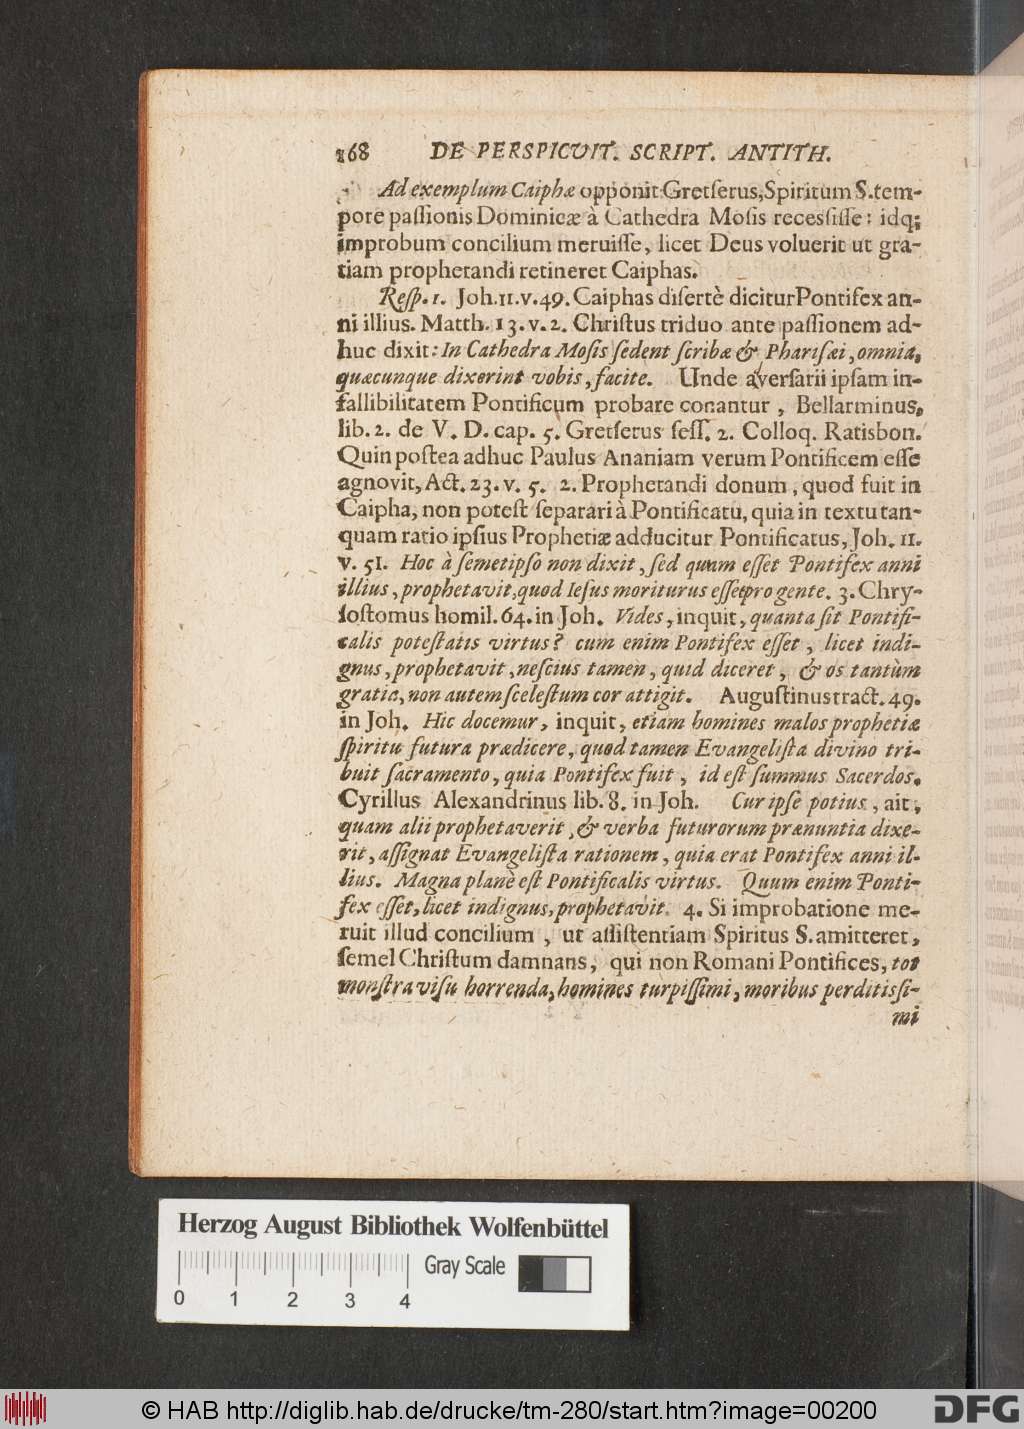 168 DE PERSPICVIT. SCRIPT. ANTITH.
Ad exemplum Caiphæ opponit Gretſerus, Spiritum S. tem-
pore paſſionis Dominicæ à Cathedra Moſis receſſiſſe: idq;
improbum concilium meruiſſe, licet Deus voluerit ut gra-
tiam prophetandi retineret Caiphas.
Reſp. 1. Joh. 11. v. 49. Caiphas diſertè dicitur Pontifex an-
ni illius. Matth. 13. v. 2. Chriſtus triduo ante paſſionem ad-
huc dixit: In Cathedra Moſis ſedent ſcribæ & Phariſæi, omnia,
quæcunque dixerint vobis, facite. Unde averſarii ipſam in-
fallibilitatem Pontificum probare conantur, Bellarminus,
lib. 2. de V. D. cap. 5. Gretſerus ſeſſ. 2. Colloq. Ratisbon.
Quin poſtea adhuc Paulus Ananiam verum Pontificem eſſe
agnovit, Act. 23. v. 5. 2. Prophetandi donum, quod fuit in
Caipha, non poteſt ſeparari à Pontificatu, quia in textu tan-
quam ratio ipſius Prophetiæ adducitur Pontificatus, Joh. 11.
v. 51. Hoc à ſemetipſo non dixit, ſed quum eſſet Pontifex anni
illius, prophetavit, quod Ieſus moriturus eſſet pro gente. 3. Chry-
ſoſtomus homil. 64. in Joh. Vides, inquit, quanta ſit Pontifi-
calis poteſtatis virtus? cum enim Pontifex eſſet, licet indi-
gnus, prophetavit, neſcius tamen, quid diceret, & os tantùm
gratia, non autem ſceleſtum cor attigit. Auguſtinus tract. 49.
in Joh. Hic docemur, inquit, etiam homines malos prophetiæ
ſpiritu futura prædicere, quod tamen Evangeliſta divino tri-
buit ſacramento, quia Pontifex fuit, id eſt ſummus Sacerdos.
Cyrillus Alexandrinus lib. 8. in Joh. Cur ipſe potius, ait,
quam alii prophetaverit, & verba futurorum prænuntia dixe-
rit, aſſignat Evangeliſta rationem, quia erat Pontifex anni il-
lius. Magna planè eſt Pontificalis virtus. Quum enim Ponti-
fex eſſet, licet indignus, prophetavit. 4. Si improbatione me-
ruit illud concilium, ut aſſiſtentiam Spiritus S. amitteret,
ſemel Chriſtum damnans, qui non Romani Pontifices, tot
monſtra viſu horrenda, homines turpiſſimi, moribus perditiſſi-
mi
Herzog August Bibliothek Wolfenbüttel
Gray Scale
0 1 2 3 4
© HAB http://diglib.hab.de/drucke/tm-280/start.htm?image=00200
DFG